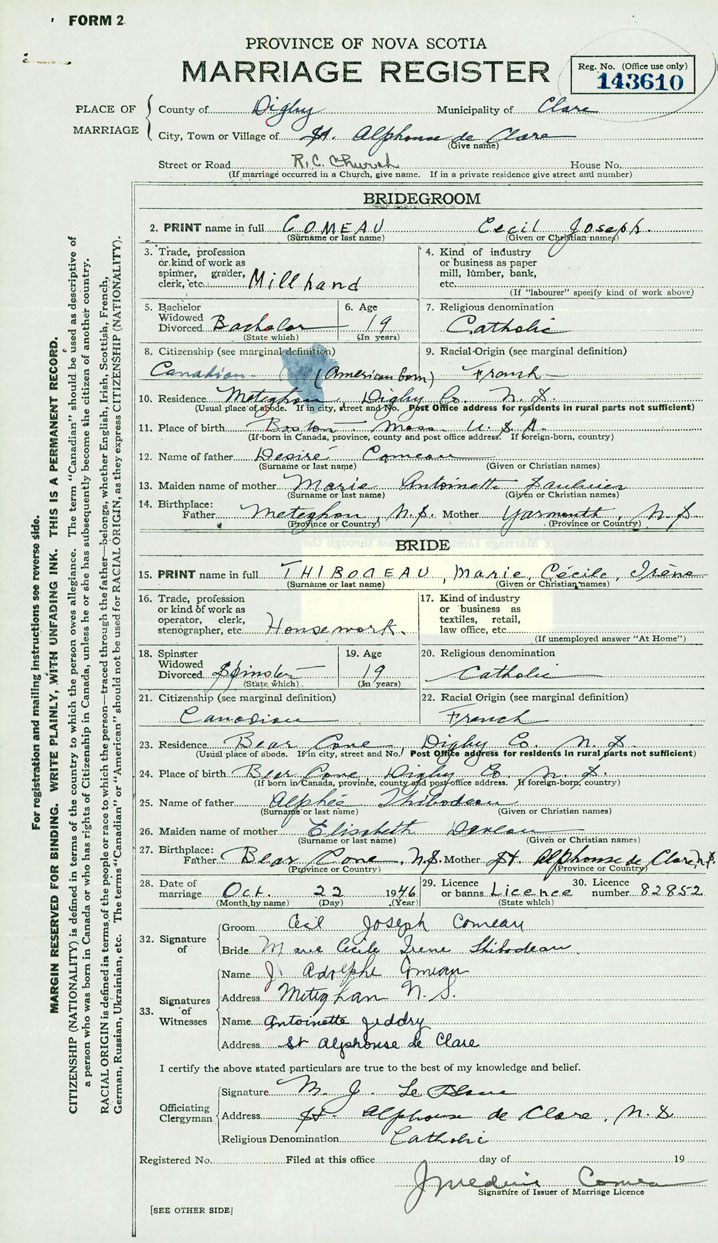 FORM 2
PROVINCE OF NOVA SCOTIA
MARRIAGE REGISTER
Reg. No. (Office use only)
143610
PLACE OF MARRIAGE
County of Digby Municipality of Clare
City, Town or Village of St. Alphonse de Clare
(Give name)
Street or Road R.C. Church House No.
(If marriage occurred in a Church, give name. If in a private residence give street and number)
BRIDEGROOM
2. PRINT name in full COMEAU Cecil Joseph.
(Surname or last name) (Given or Christian names)
3. Trade, profession or kind of work as spinner, grader, clerk, etc. Mill hand
4. Kind of industry or business as paper mill, lumber, bank, etc.
(If "labourer" specify kind of work above)
5. Bachelor Widowed Divorced Bachelor (State which)
6. Age 19 (In years)
7. Religious denomination Catholic
8. Citizenship (see marginal definition) Canadian (American born)
9. Racial Origin (see marginal definition) French
10. Residence Meteghan, Digby Co. N.S.
(Usual place of abode. If in city, street and No. Post Office address for residents in rural parts not sufficient)
11. Place of birth Boston Mass. U.S.A.
(If born in Canada, province, county and post office address. If foreign-born, country)
12. Name of father Desiré Comeau
(Surname or last name) (Given or Christian names)
13. Maiden name of mother Marie Antoinette Saulnier
(Surname or last name) (Given or Christian names)
14. Birthplace: Father Meteghan, N.S. Mother Yarmouth, N.S.
(Province or Country) (Province or Country)
BRIDE
15. PRINT name in full THIBODEAU, Marie, Cécile, Irène
(Surname or last name) (Given or Christian names)
16. Trade, profession or kind of work as operator, clerk, stenographer, etc. Housework.
17. Kind of industry or business as textiles, retail, law office, etc.
(If unemployed answer "At Home")
18. Spinster Widowed Divorced Spinster (State which)
19. Age 19 (In years)
20. Religious denomination Catholic
21. Citizenship (see marginal definition) Canadian
22. Racial Origin (see marginal definition) French
23. Residence Bear Cove Digby Co. N.S.
(Usual place of abode. If in city, street and No. Post Office address for residents in rural parts not sufficient)
24. Place of birth Bear Cove, Digby Co. N.S.
(If born in Canada, province, county and post-office address. If foreign-born, country)
25. Name of father Alphée Thibodeau
(Surname or last name) (Given or Christian names)
26. Maiden name of mother Elisabeth Deveau
(Surname or last name) (Given or Christian names)
27. Birthplace: Father Bear Cove, N.S. Mother St. Alphonse de Clare, N.S.
(Province or Country) (Province or Country)
28. Date of marriage Oct. 22 1946
(Month, by name) (Day) (Year)
29. Licence or banns Licence (State which)
30. Licence number 82852
32. Signature of
Groom Cecil Joseph Comeau
Bride Marie Cecile Irene Thibodeau
33. Signatures of Witnesses
Name J. Adolphe Comeau
Address Meteghan N.S.
Name Antoinette Jeddry
Address St Alphonse de Clare
I certify the above stated particulars are true to the best of my knowledge and belief.
Officiating Clergyman
Signature M. J. LeBlanc
Address St. Alphonse de Clare, N.S.
Religious Denomination Catholic
Registered No. Filed at this office day of 19
Comeau
Signature of Issuer of Marriage Licence
[SEE OTHER SIDE]
For registration and mailing instructions see reverse side.
MARGIN RESERVED FOR BINDING. WRITE PLAINLY, WITH UNFADING INK. THIS IS A PERMANENT RECORD.
CITIZENSHIP (NATIONALITY) is defined in terms of the country to which the person owes allegiance. The term "Canadian" should be used as descriptive of
a person who was born in Canada or who has rights of Citizenship in Canada, unless he or she has subsequently become the citizen of another country.
RACIAL ORIGIN is defined in terms of the people or race to which the person—traced through the father—belongs, whether English, Irish, Scottish, French,
German, Russian, Ukrainian, etc. The terms "Canadian" or "American" should not be used for RACIAL ORIGIN, as they express CITIZENSHIP (NATIONALITY).